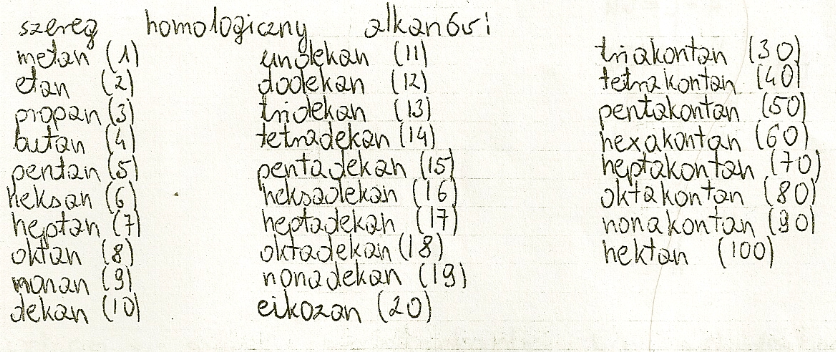 szereg homologiczny alkanów:
metan (1)
etan (2)
propan (3)
butan (4)
pentan (5)
heksan (6)
heptan (7)
oktan (8)
nonan (9)
dekan (10)
undekan (11)
dodekan (12)
tridekan (13)
tetradekan (14)
pentadekan (15)
heksadekan (16)
heptadekan (17)
oktadekan (18)
nonadekan (19)
eikozan (20)
triakontan (30)
tetrakontan (40)
pentakontan (50)
hexakontan (60)
heptakontan (70)
oktakontan (80)
nonakontan (90)
hektan (100)